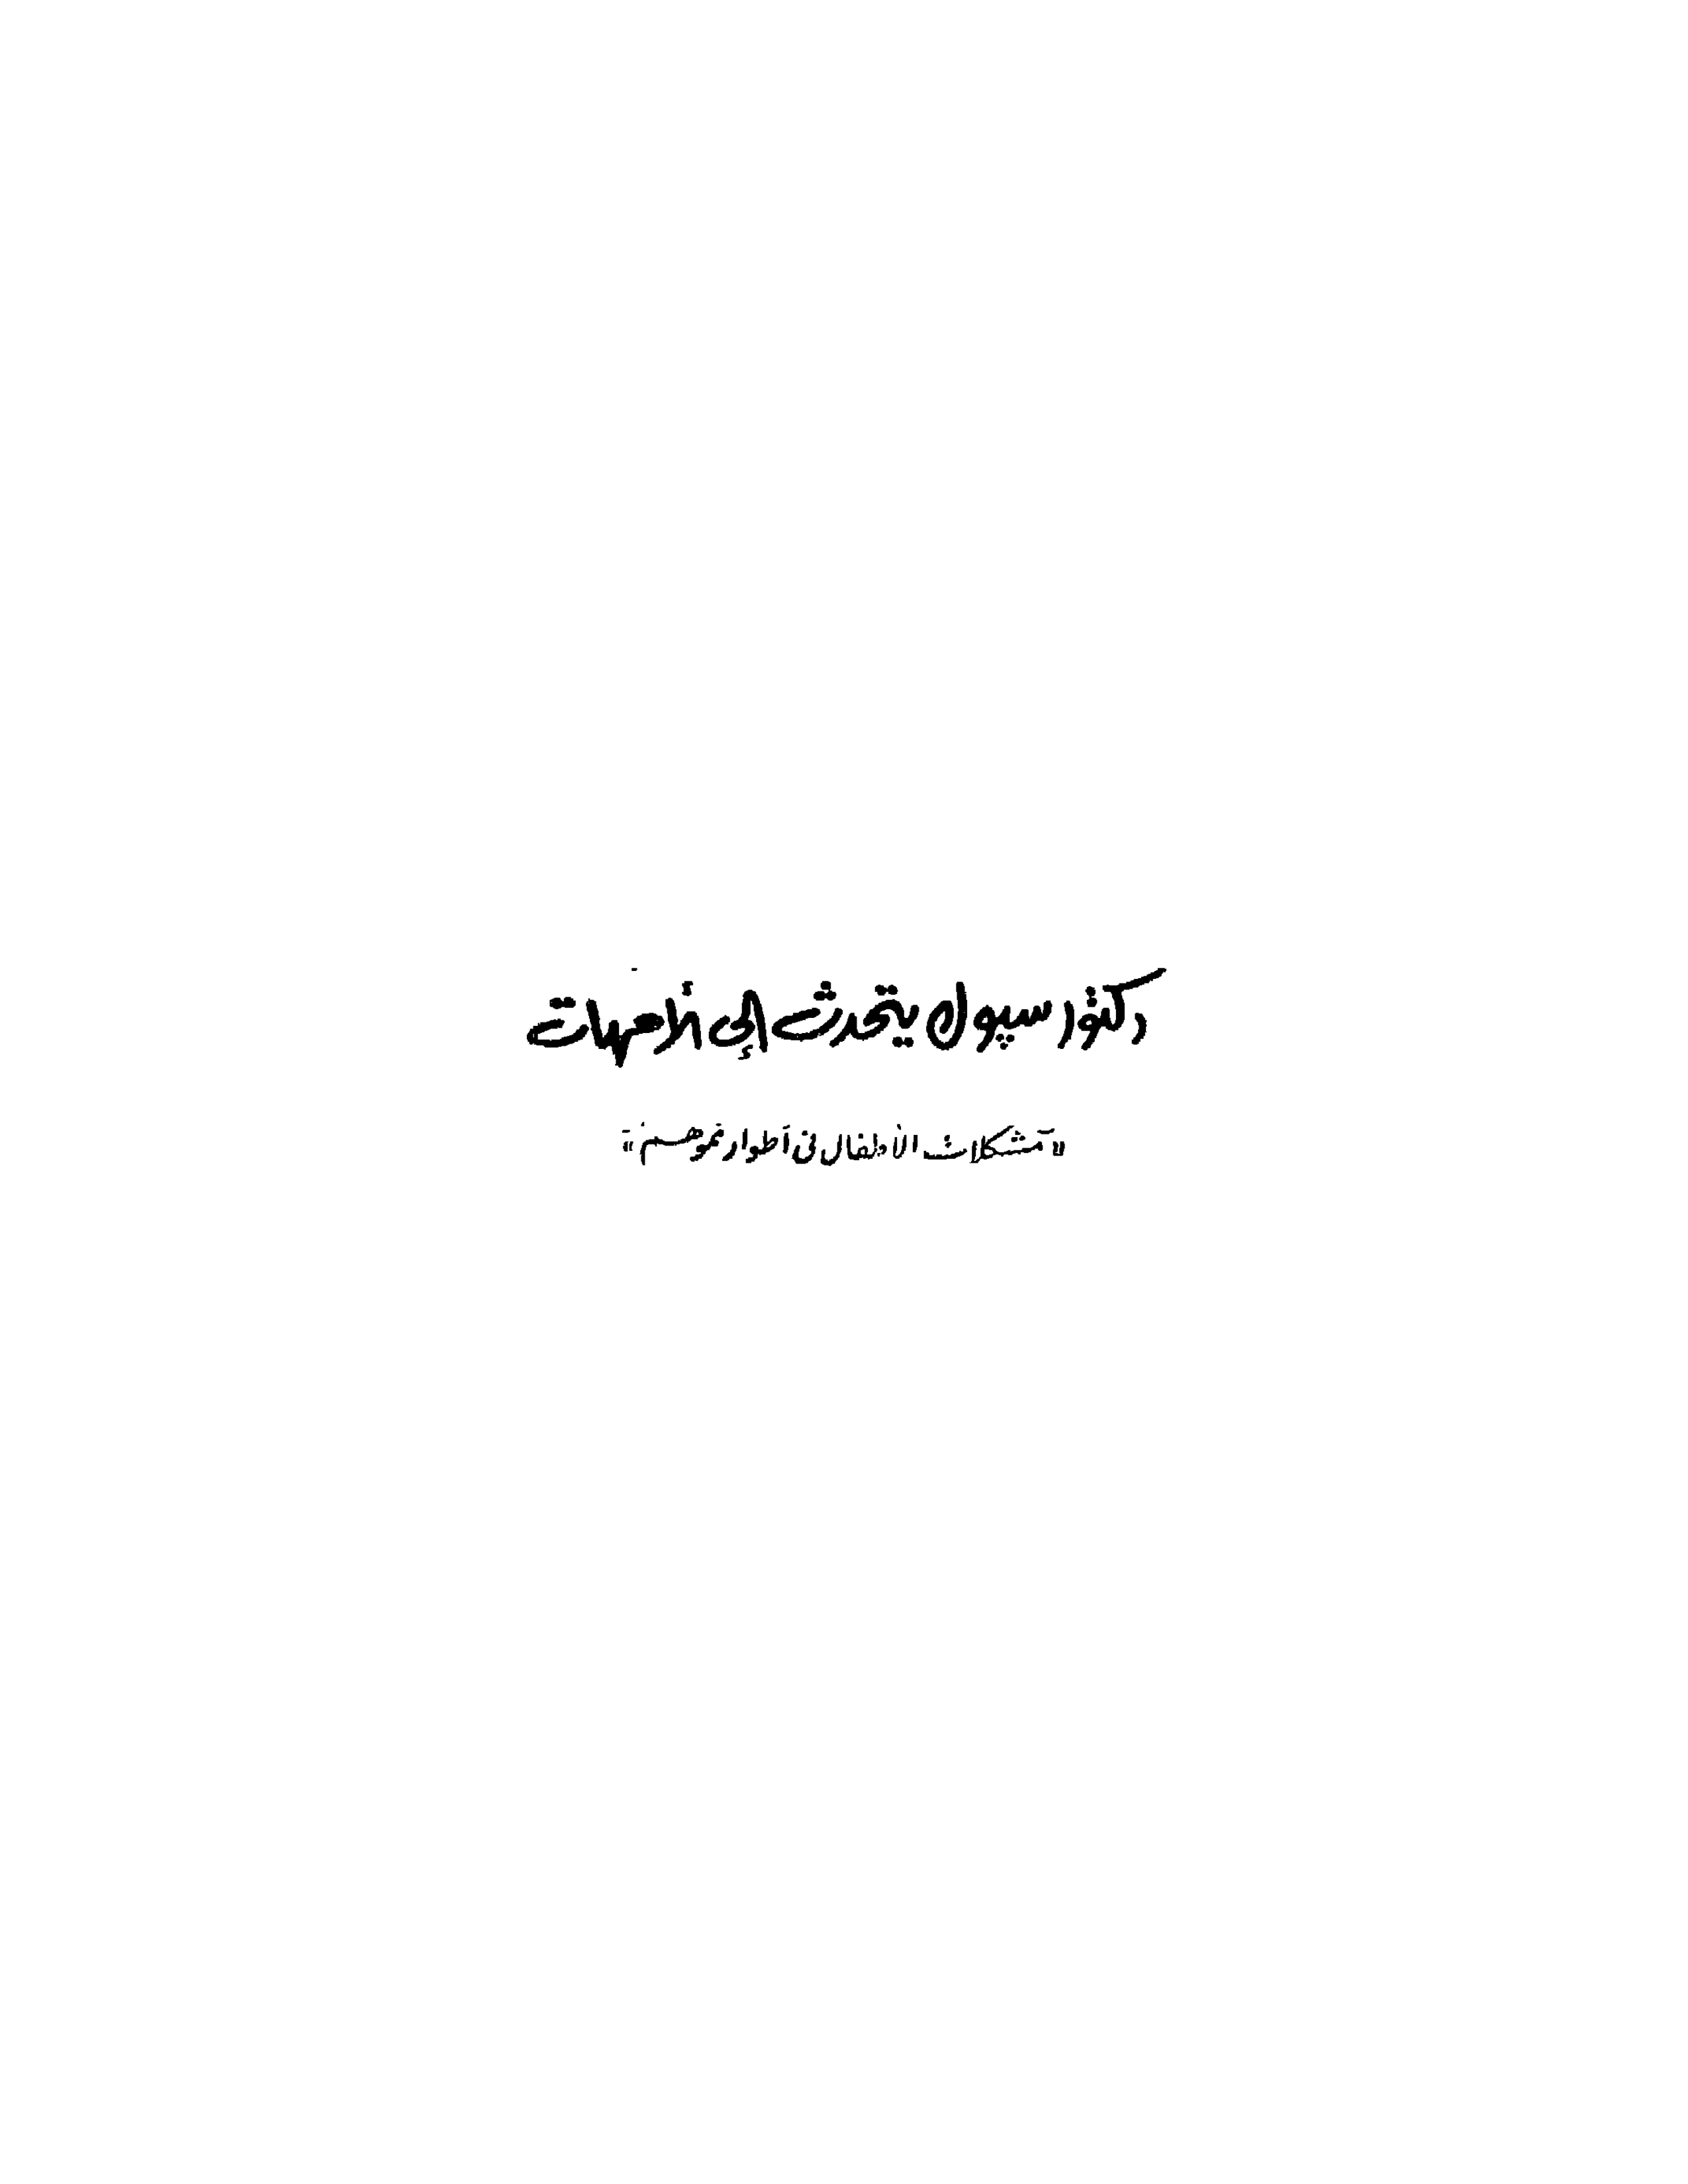 دكتور سپوك يتحدث إلى الأمهات
« مشكلات الأطفال فى أطوار نموهم »